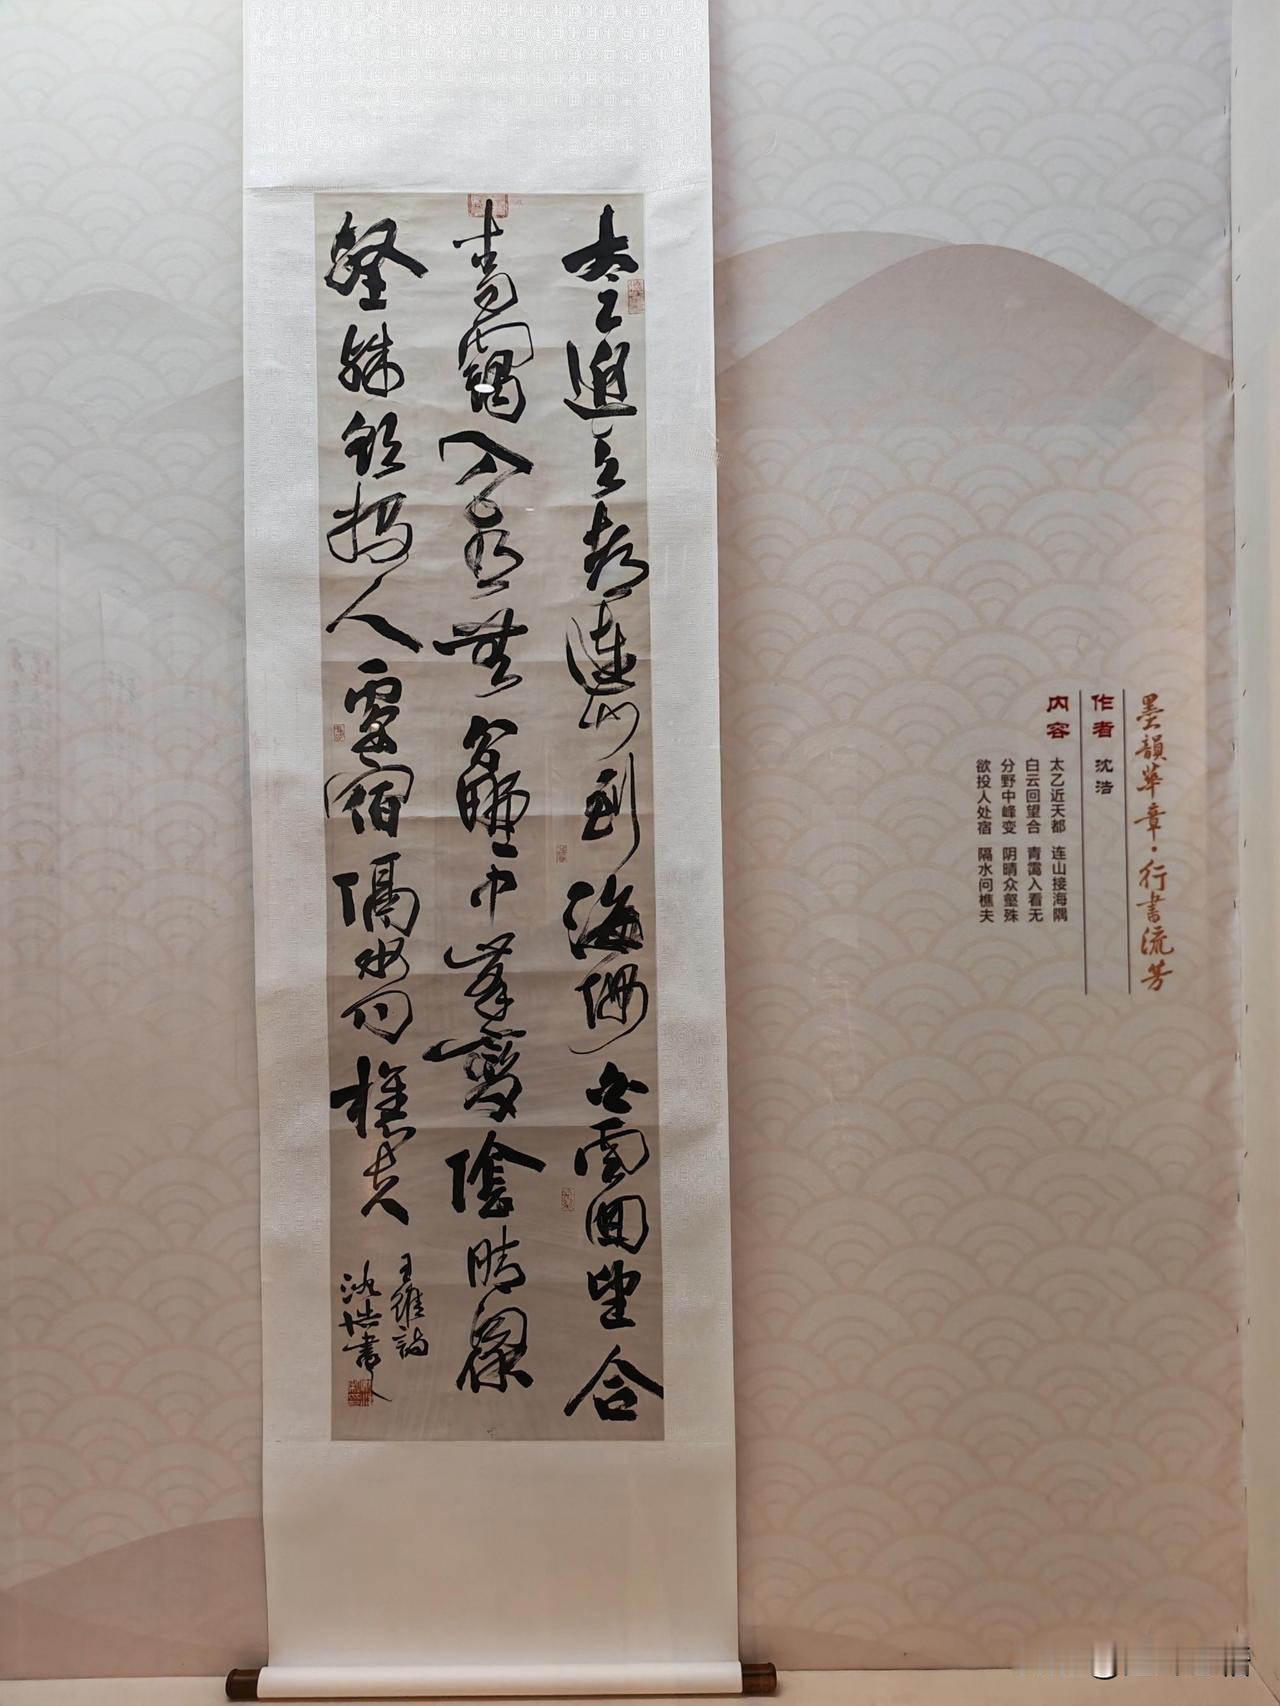 太乙近天都連山到海隅白雲回望合
青靄入看無分野中峯變陰晴衆
壑殊欲投人處宿隔水問樵夫
王維詩
沈浩書
墨韻華章·行書流芳
作者 沈浩
内容 太乙近天都 连山接海隅
白云回望合 青霭入看无
分野中峰变 阴晴众壑殊
欲投人处宿 隔水问樵夫